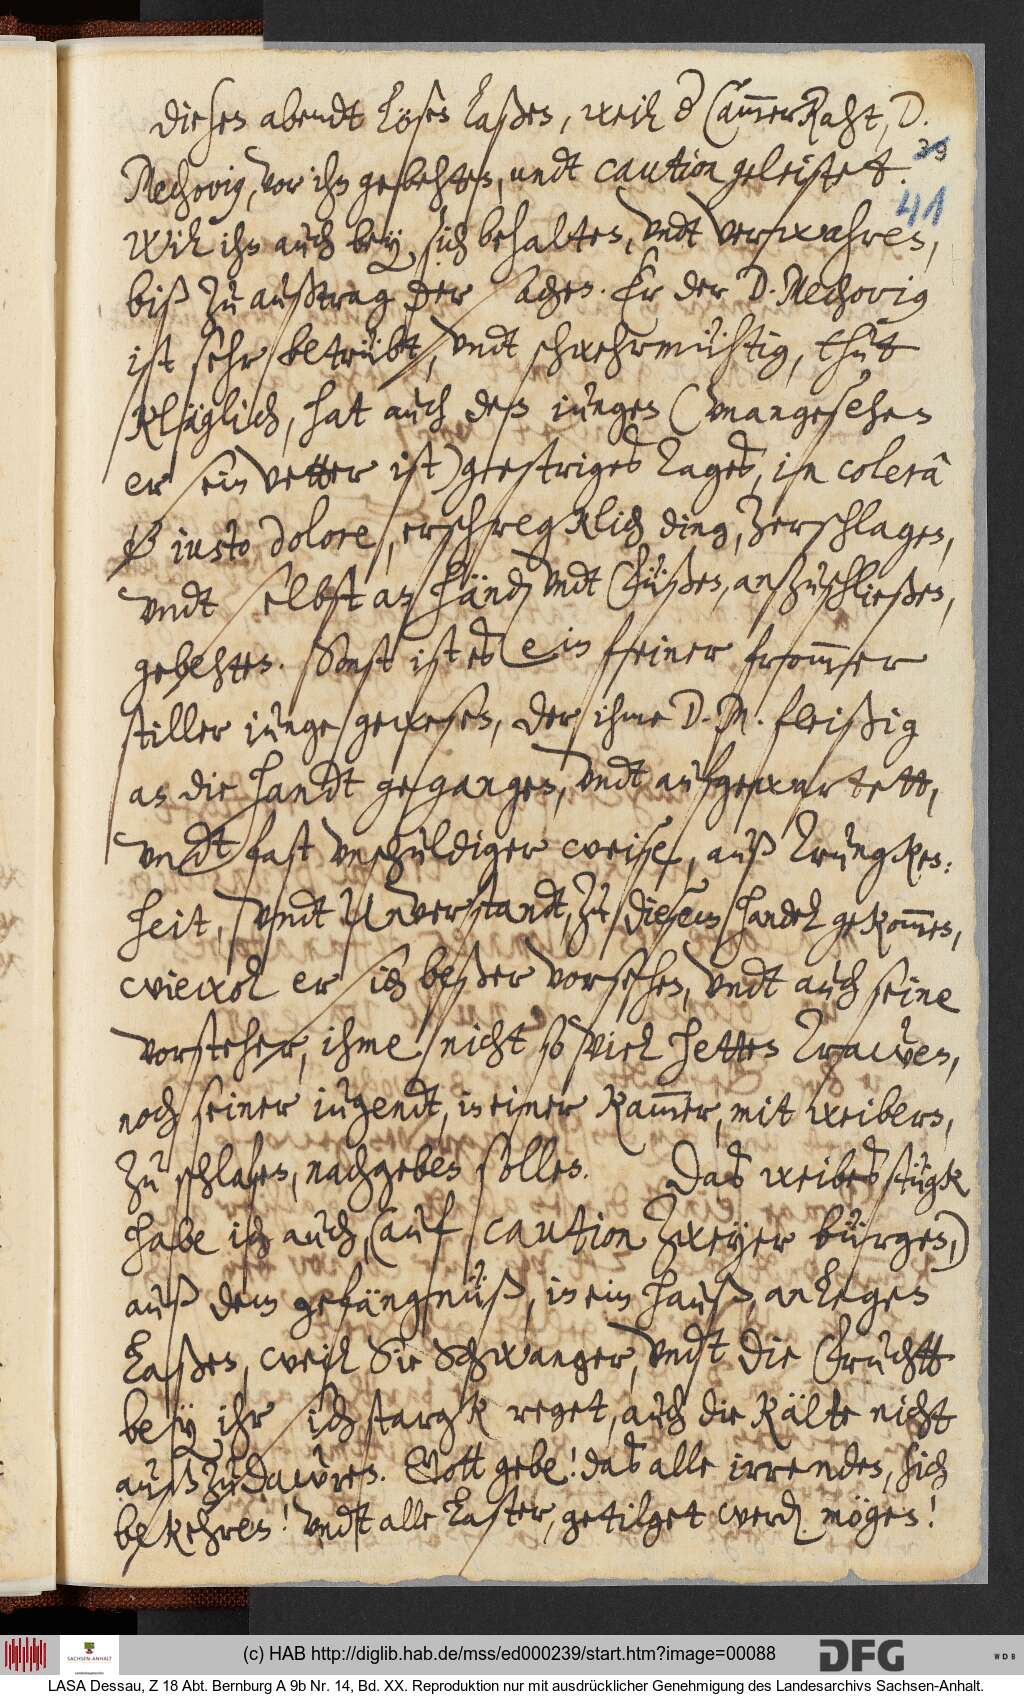 diesen abendt lösen laßen, weil d CammerRaht, D.
39
Mechovig, vor ihn gebehten, undt caution geleistet.
41
Will ihn auch bey sich behalten, vndt verwahren,
biß zu außtrag der sachen. Er der D. Mechovig
ist sehr betrübt, vndt schwehrmühtig, thut
kläglich, hat auch den jungen (vnangesehen
er sein vetter ist) gestriges tages, in colerâ
& iusto dolore, erschregklich ding, zerschlagen,
vndt selbst an händ vndt Füßen, anzuschließen,
gebehten. Sonst ist es ein feiner frommer
stiller junge gewesen, der ihme D. M. fleißig
an die handt gegangen, vndt aufgewartett,
vndt fast vnschuldiger weise, auß Trungken-
heit, vndt Unverstandt, zu diesem handel gekommen,
wiewol er sich beßer vorsehen, vndt auch seine
vorsteher, ihme nicht so viel hetten trawen,
noch seiner jugendt, in einer kammer, mit weibern,
zu schlafen, nachgeben sollen. Das weibesstügk
habe ich auch, (auf caution zweyer bürgen,)
auß dem gefängnüß, in ein hauß, anlegen
laßen, weil Sie Schwanger, vndt die Fruchtt
bey ihr sich stargk reget, auch die Kälte nicht
außzudawren. Gott gebe! das alle irrenden, sich
bekehren! vndt alle Laster, getilget werd mögen!
(c) HAB http://diglib.hab.de/mss/ed000239/start.htm?image=00088
SACHSEN-ANHALT
DFG
WDB
LASA Dessau, Z 18 Abt. Bernburg A 9b Nr. 14, Bd. XX. Reproduktion nur mit ausdrücklicher Genehmigung des Landesarchivs Sachsen-Anhalt.